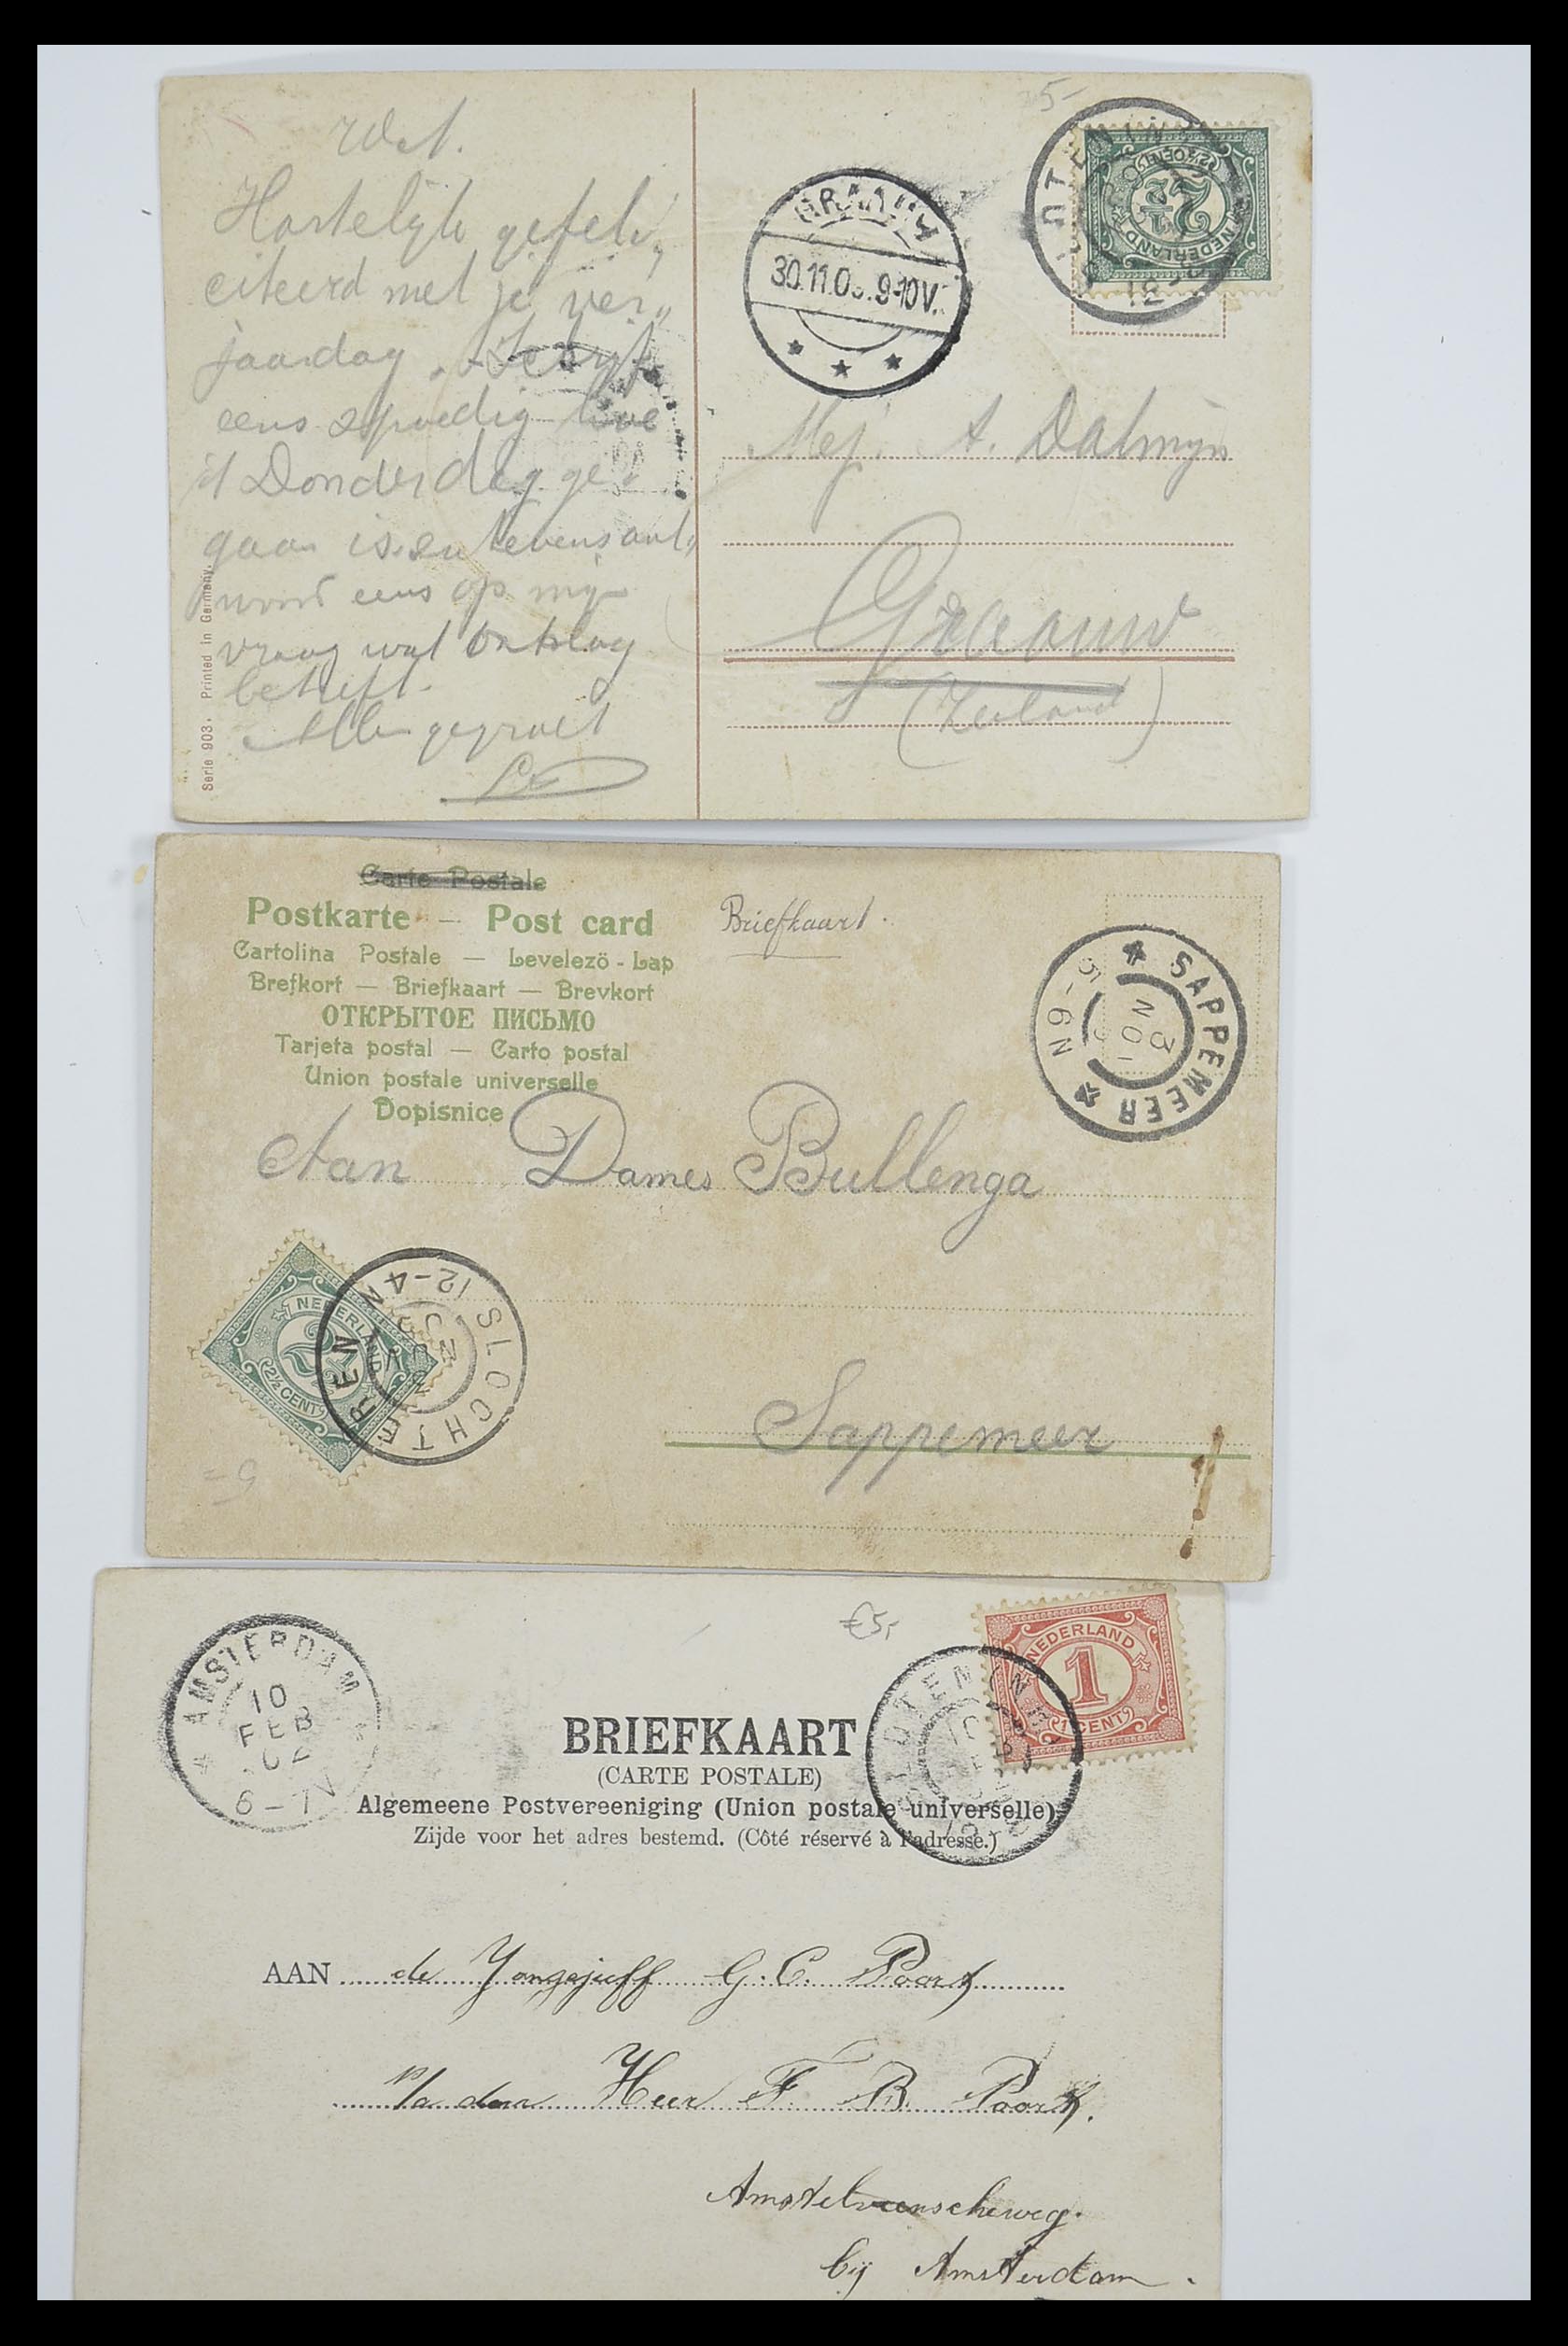 Hartelijk gefeli„
citeerd met je ver„
jaardag. Schrijf
eens spoedig hoe
't Donderdag ge„
gaan is en tevens ant„
woord eens op mijn
vraag wat ontslag
betreft.
Allen gegroet
Serie 903. Printed in Germany.
5-
SLUTEN
NEDERLAND
2½
2½ CENT
GRAAUW
30.11.0 .9-10V.
Mej. A. Dalmijn
Graauw
(Zeeland)
Carte Postale
Postkarte — Post card
Cartolina Postale — Levelezö - Lap
Brefkort — Briefkaart — Brevkort
ОТКРЫТОЕ ПИСЬМО
Tarjeta postal — Carto postal
Union postale universelle
Dopisnice
Briefkaart.
SAPPEMEER
3
NO
5-6N
Aan Dames Bullenga
NEDERLAND
2½
2½ CENT
SLOCHTEREN
12-4N
5-
Sappemeer
AMSTERDAM
10
FEB
02
6-7V
€5,-
NEDERLAND
1
1 CENT
BRIEFKAART
(CARTE POSTALE)
Algemeene Postvereeniging (Union postale universelle)
Zijde voor het adres bestemd. (Côté réservé à l'adresse.)
AAN de Jongejuff G. C. Poort
p/a den Heer F. B. Poort.
Amstelveenscheweg.
bij Amsterdam.